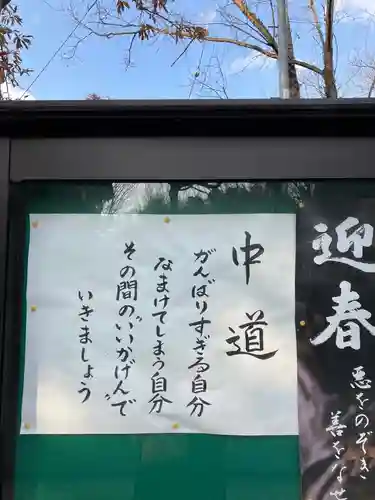 中道
がんばりすぎる自分
なまけてしまう自分
その間のいいかげんで
いきましょう
迎春
悪をのぞき
善をな